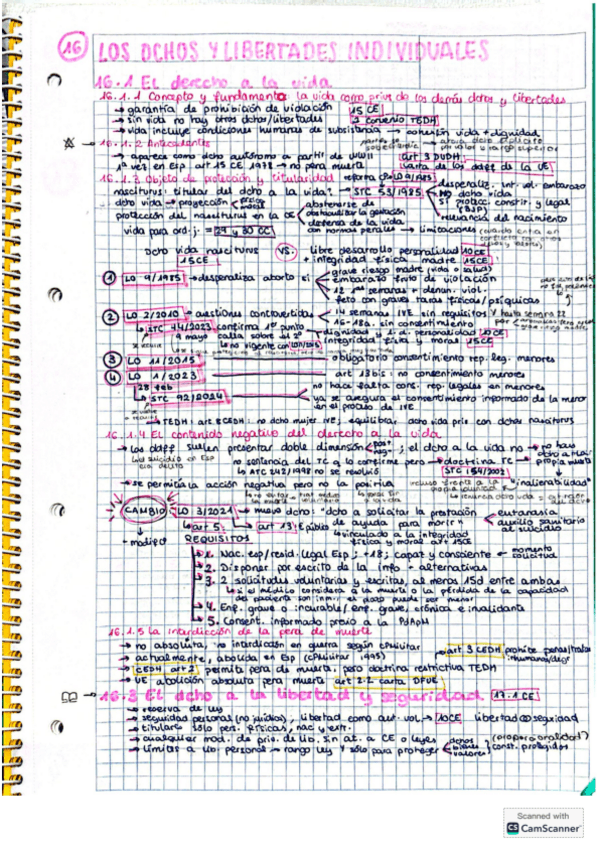 16 LOS DCHOS Y LIBERTADES INDIVIDUALES
16.1 El derecho a la vida
16.1.1 Concepto y fundamento: la vida como prius de los demás dchos y libertades
→ garantía de prohibición de violación 15 CE
→ sin vida no hay otros dchos/libertades 2 convenio TEDH
→ vida incluye condiciones humanas de subsistencia → cohesión vida + dignidad
16.1.2 Antecedentes
→ aparece como dcho autónomo a partir de WWII art 3 DUDH
1ª vez en Esp: art 15 CE 1978 → no pena muerte carta de los ddff de la UE
16.1.3 Objeto de protección y titularidad reforma CP: LO 9/1985
nasciturus: titular del dcho a la vida? → STC 53/1985 despenaliz. int. vol. embarazo
NO dcho vida
dcho vida → proyección abstenerse de obstaculizar la gestación
SÍ protecc. constit. y legal (BJP)
protección del nasciturus en la CE defensa de la vida con normas penales
relevancia del nacimiento
vida para ord. j. = 29 y 30 CC → limitaciones
Dcho vida nasciturus 15 CE VS. libre desarrollo personalidad 10 CE
+ integridad física madre 15 CE
1 LO 9/1985 → despenaliza aborto si grave riesgo madre (vida o salud)
embarazo fruto de violación
12 1as semanas + denun. viol.
feto con graves taras físicas/psíquicas
2 LO 2/2010 → cuestiones controvertidas 14 semanas IVE sin requisitos y hasta semana 22
16-18a. sin consentimiento
STC 44/2023 confirma 1er punto dignidad y l.d. personalidad 10 CE
9 mayo calla sobre el 2º integridad física y moral 15 CE
3 LO 11/2015 → obligatorio consentimiento rep. leg. menores
4 LO 1/2023 art 13 bis: no consentimiento menores
28 feb no hace falta cons. rep legales en menores
STC 92/2024 ya se asegura el consentimiento informado de la menor en el proceso de IVE
→ TEDH: art 8 CEDH: no dcho mujer IVE; equilibrio dcho vida priv. con dchos nasciturus
16.1.4 El contenido negativo del derecho a la vida
→ los ddff suelen presentar doble dimensión posit. negat.; el dcho a la vida no → no hay dcho a la propia muerte
no sentencia del TC q lo confirme pero → doctrina TC STC 154/2002
→ se permitía la acción negativa pero no la positiva "inalienabilidad"
CAMBIO LO 3/2021 → nuevo dcho: "dcho a solicitar la prestación de ayuda para morir" eutanasia
auxilio sanitario al suicidio
→ art 5: → art 13: → vinculado a la integridad física y moral art 15 CE
+ modif CP
REQUISITOS
1. Nac. esp/resid. legal Esp; +18; capaz y consciente ← momento solicitud
2. Disponer por escrito de la info + alternativas
3. 2 solicitudes voluntarias y escritas, al menos 15d entre ambas
↳ si el médico considera q la muerte o la pérdida de la capacidad del paciente son inmin. el plazo puede ser menor
4. Enf. grave o incurable/enf. grave, crónica e invalidante
5. Consent. informado previo a la PdApM
16.1.5 La interdicción de la pena de muerte
→ no absoluta, no interdicción en guerra según CP militar
→ actualmente, abolida en Esp (CP Militar 1995) art 3 CEDH prohíbe penas/tratos inhumanos/degr
→ CEDH art 2: permitía pena de muerte, pero doctrina restrictiva TEDH
→ UE abolición absoluta pena muerte art 2.2 carta DFUE
16.3 El dcho a la libertad y seguridad 17.1 CE
→ reserva de ley
→ seguridad personal (no jurídica), libertad como aut. vol → 10 CE libertad seguridad
→ titular sólo pers. físicas, nac y extr.
→ cualquier mod. de priv. de lib. sin at. a CE o leyes
→ límites a lib. personal → rango ley y sólo para proteger dchos bienes valores const. protegidos (proporcionalidad)
Scanned with
CS CamScanner